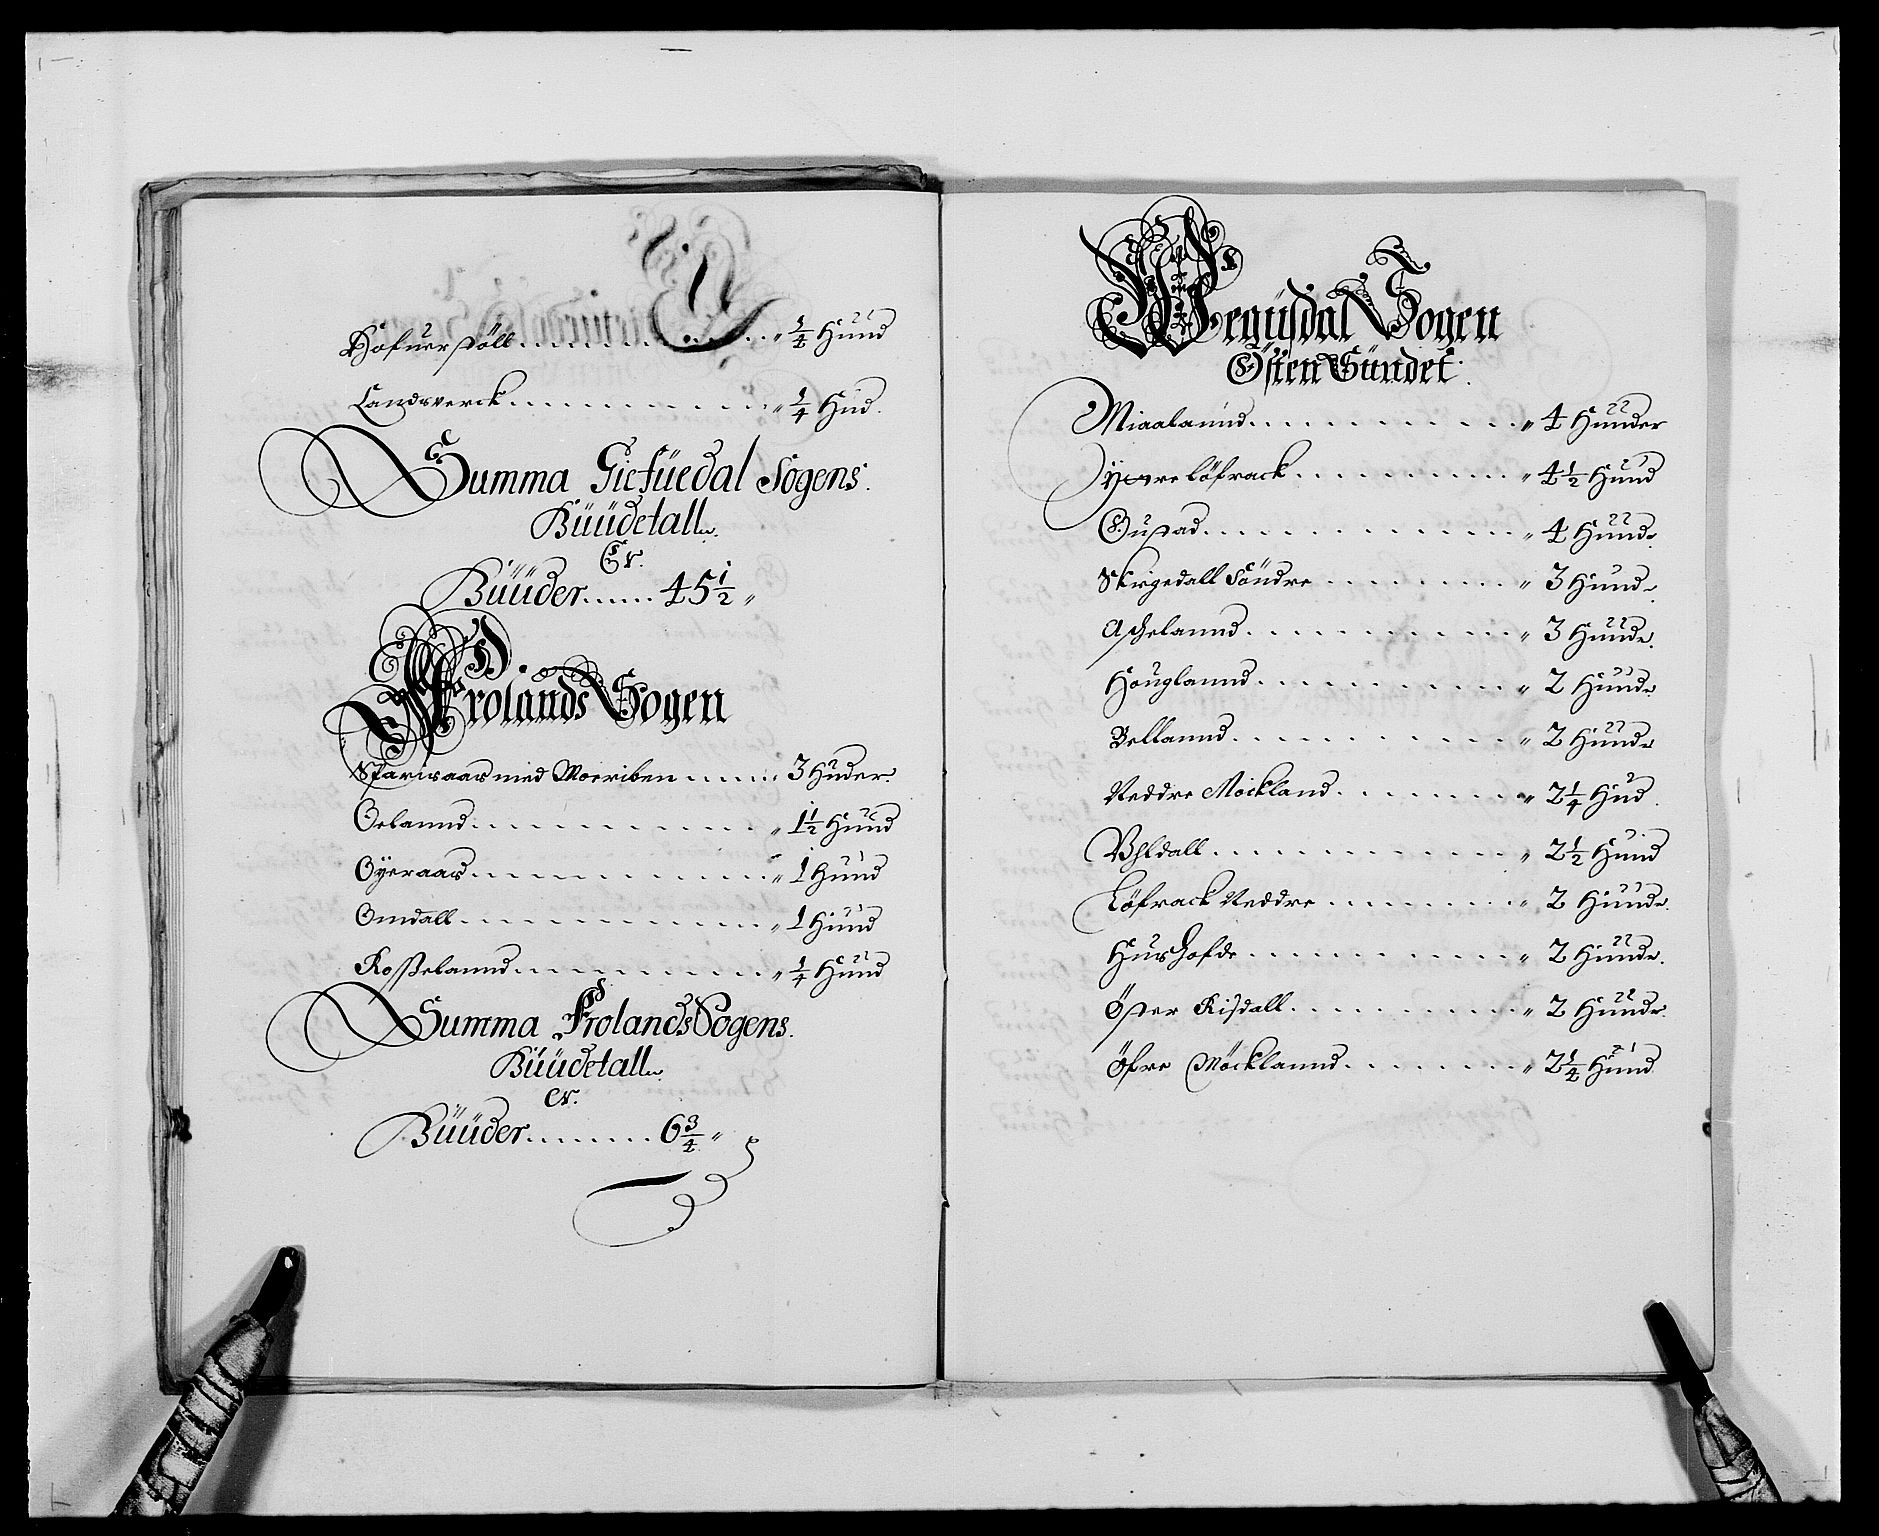 Hofuerstöll . . . . . . . . . . " 1/4 Huud
Landsverck . . . . . . . . . . " 1/4 Hud.
Summa Giefüedal Sogens.
Büüdetall.
Er.
Büüder...... 45 1/2 "
Frolands Sogen
Skarisaas med Moeriben ...... 3 Huder.
Oelannd . . . . . . . . . . " 1 1/2 Huud
Oyeraas . . . . . . . . . . " 1 Huud
Omdall . . . . . . . . . . " 1 Huud
Rosselannd . . . . . . . . . " 1/4 Huud
Summa Frolands Sogens.
Büüdetall.
er.
Büüder......... 6 3/4 "
Hegüsdal Sogen
Östen Sündet.
Miaalannd . . . . . . . . . . " 4 Huuder
Yttre Löfrack . . . . . . . . " 4 1/2 Huud
Gustad . . . . . . . . . . " 4 Huude.
Skregedall Söndre . . . . . . . " 3 Huude.
Askelannd . . . . . . . . . . " 3 Huude.
Houglannd . . . . . . . . . . " 2 Huude
Bellannd . . . . . . . . . . " 2 Huude
Neddre Möckland . . . . . . . " 2 1/4 Hud.
Uhldall . . . . . . . . . . " 2 1/2 Huud
Löfrack Neddre . . . . . . . " 2 Huude.
Hurshofde . . . . . . . . . . " 2 Huude.
Öster Risdall . . . . . . . . " 2 Huude.
Öfre Möcklannd . . . . . . . " 2 1/4 Huud